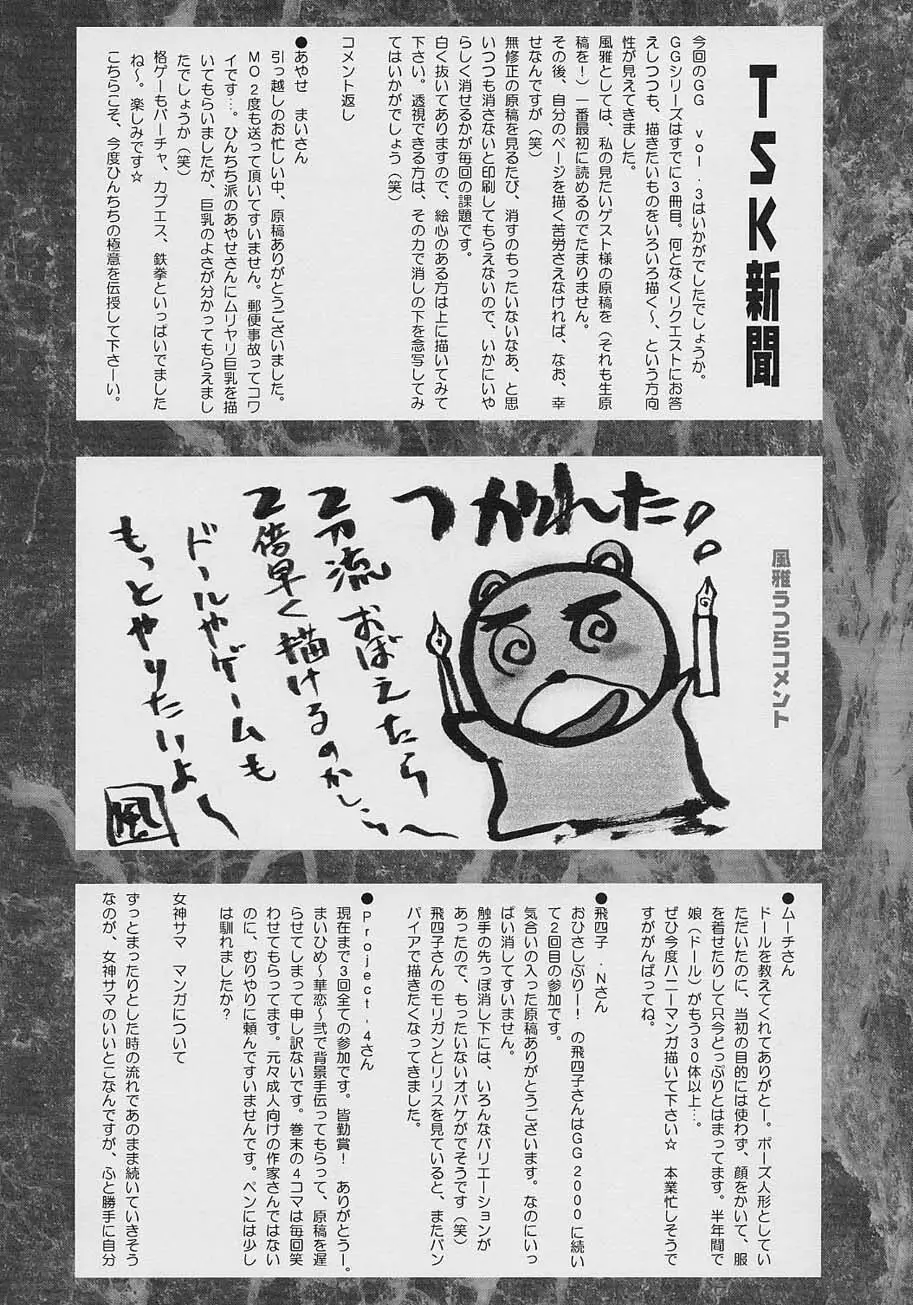 TSK新聞
今回のGG vol.3はいかがでしたでしょうか。
GGシリーズはすでに3冊目。何となくリクエストにお答
えしつつも、描きたいものをいろいろ描く～、という方向
性が見えてきました。
風雅としては、私の見たいゲスト様の原稿を(それも生原
稿を!)一番最初に読めるのでたまりません。
その後、自分のページを描く苦労さえなければ、なお、幸
せなんですが(笑)
無修正の原稿を見るたび、消すのもったいないなあ、と思
いつつも消さないと印刷してもらえないので、いかにいや
らしく消せるかが毎回の課題です。
白く抜いてありますので、絵心のある方は上に描いてみて
下さい。透視できる方は、その力で消しの下を念写してみ
てはいかがでしょう(笑)
コメント返し
●あやせ まいさん
引っ越しのお忙しい中、原稿ありがとうございました。
MO2度も送って頂いてすいません。郵便事故ってコワ
イです…。ひんちち派のあやせさんにムリヤリ巨乳を描
いてもらいましたが、巨乳のよさが分かってもらえまし
たでしょうか(笑)
格ゲーもバーチャ、カプエス、鉄拳といっぱいでました
ね～。楽しみです☆
こちらこそ、今度ひんちちの極意を伝授して下さーい。
風雅うつらコメント
つかれた
2刀流おぼえたら
2倍早く描けるのかしら～
ドールやゲームも
もっとやりたいよ～
風
●ムーチさん
ドールを教えてくれてありがとー。ポーズ人形としてい
ただいたのに、当初の目的には使わず、顔をかいて、服
を着せたりして只今どっぷりとはまってます。半年間で
娘(ドール)がもう30体以上…。
ぜひ今度ハニーマンガ描いて下さい☆ 本業忙しそうで
すががんばってね。
●飛四子・Nさん
おひさしぶりー!の飛四子さんはGG2000に続い
て2回目の参加です。
気合いの入った原稿ありがとうございます。なのにいっ
ぱい消してすいません。
触手の先っぽ消し下には、いろんなバリエーションが
あったので、もったいないオバケがでそうです(笑)
飛四子さんのモリガンとリリスを見ていると、またバン
パイアで描きたくなってきました。
●Project-4さん
現在まで3回全ての参加です。皆勤賞!ありがとうー。
まいひめ～華恋～弐で背景手伝ってもらって、原稿を遅
らせてしまって申し訳ないです。巻末の4コマは毎回笑
わせてもらってます。元々成人向けの作家さんではない
のに、むりやりに頼んですいませんです。ペンには少し
は馴れましたか?
女神サマ マンガについて
ずっとまったりとした時の流れであのまま続いていきそう
なのが、女神サマのいいとこなんですが、ふと勝手に自分